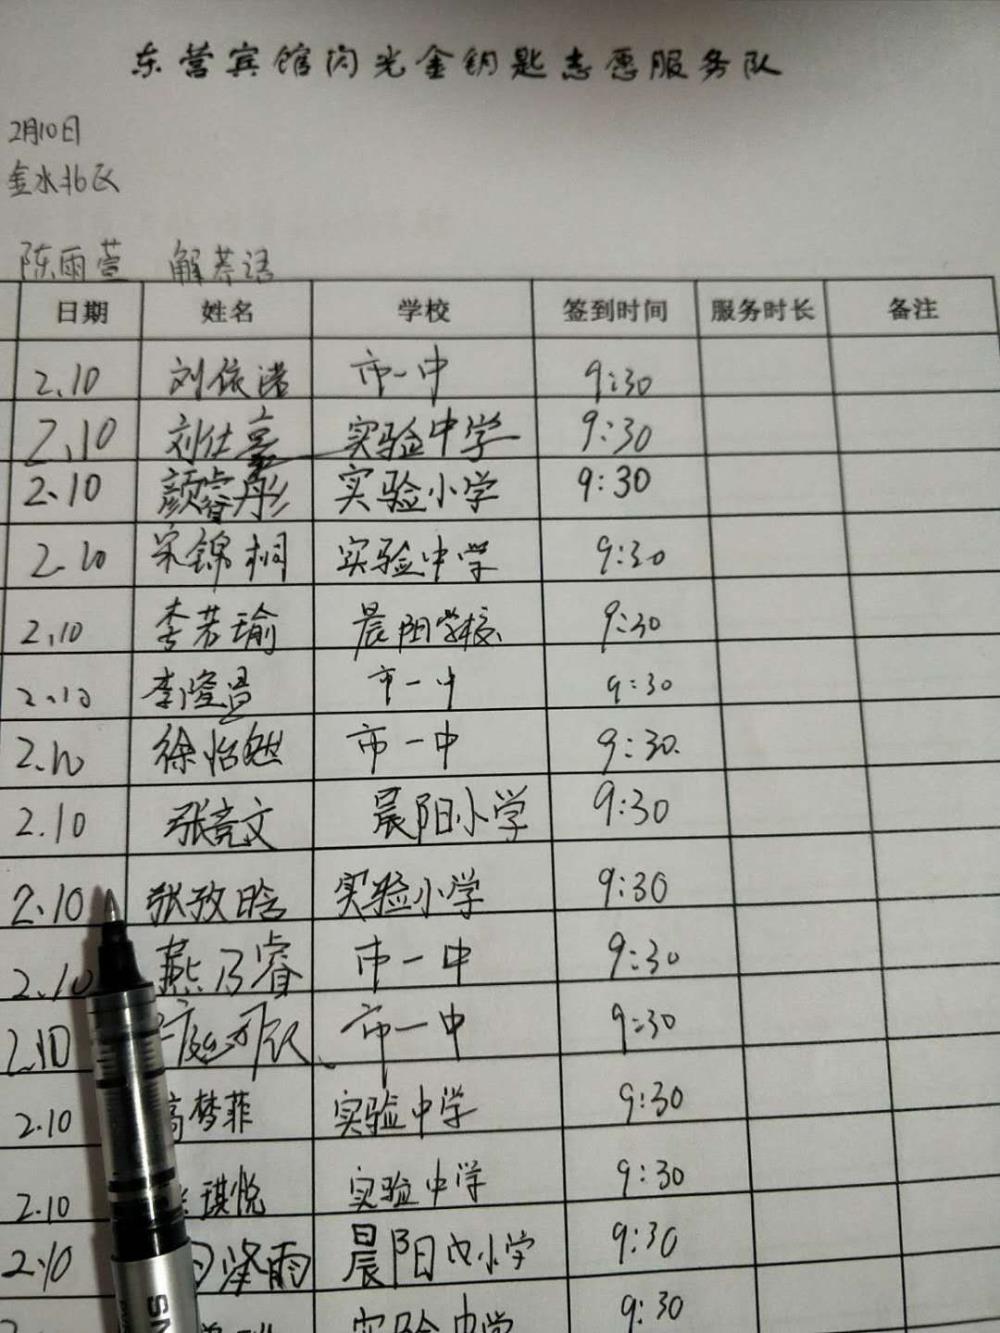 东营宾馆闪光金钥匙志愿服务队
2月10日
金水北区
陈雨萱 解荞语
日期 姓名 学校 签到时间 服务时长 备注
2.10 刘依诺 市一中 9:30
2.10 刘仕豪 实验中学 9:30
2.10 颜睿彤 实验小学 9:30
2.10 宋锦桐 实验中学 9:30
2.10 李若瑜 晨阳学校 9:30
2.10 李隆昌 市一中 9:30
2.10 徐怡然 市一中 9:30
2.10 张亮文 晨阳小学 9:30
2.10 张孜晗 实验小学 9:30
2.10 燕乃睿 市一中 9:30
2.10 市一中 9:30
2.10 高梦菲 实验中学 9:30
2.10 琪悦 实验中学 9:30
2.10 泽雨 晨阳小学 9:30
实验中学 9:30